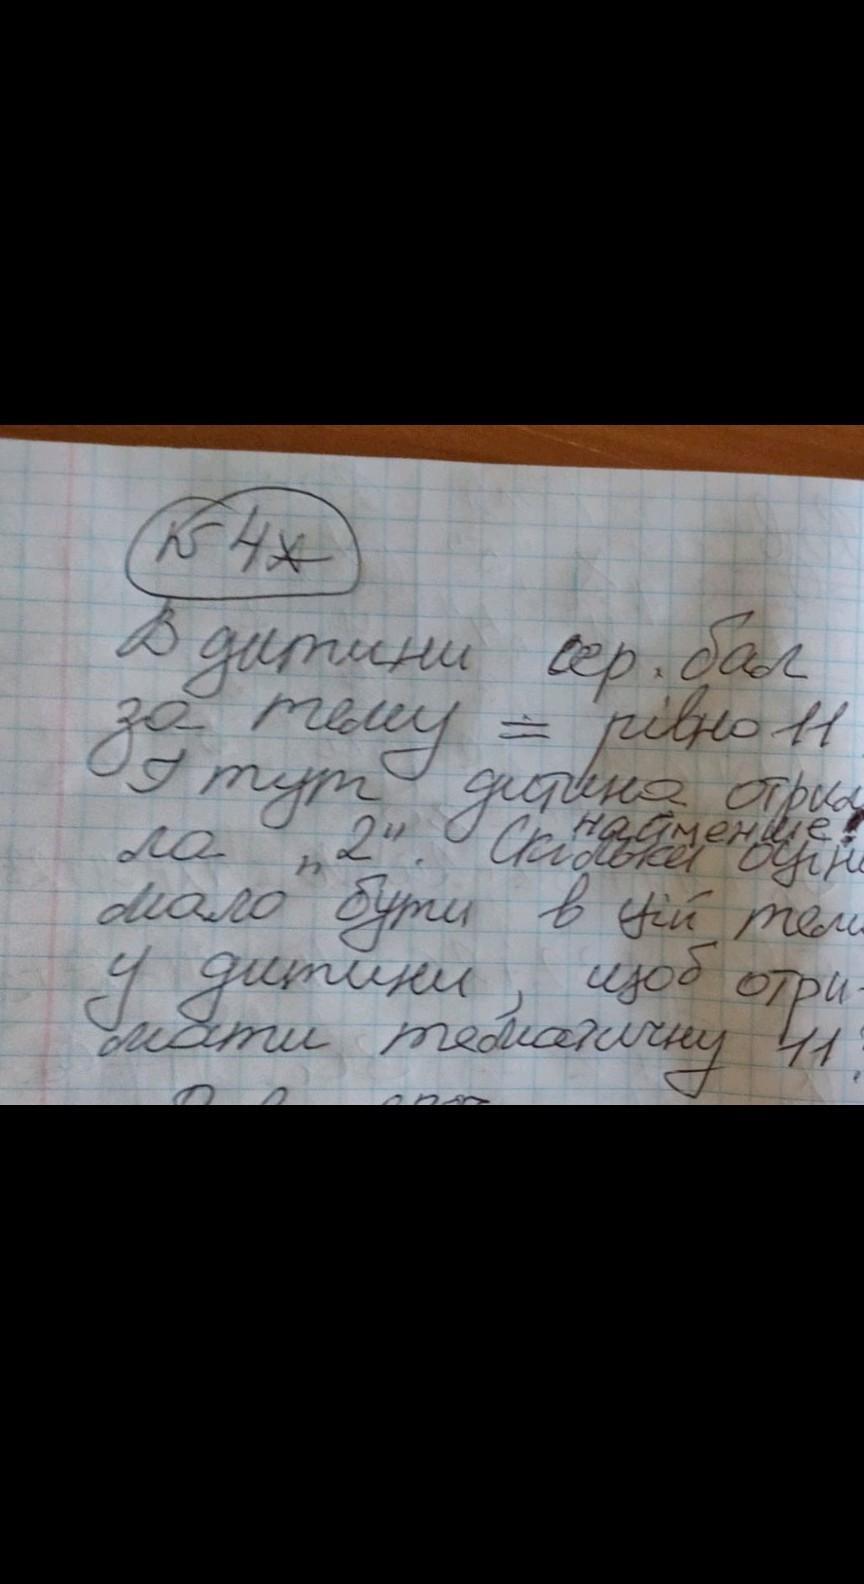 № 4*
В дитини сер. бал
за тему = рівно 11
І тут дитина отрим
ла „2". Скільки найменше оцін
мало бути в цій тем
у дитини, щоб отри-
мати тематичну 11?